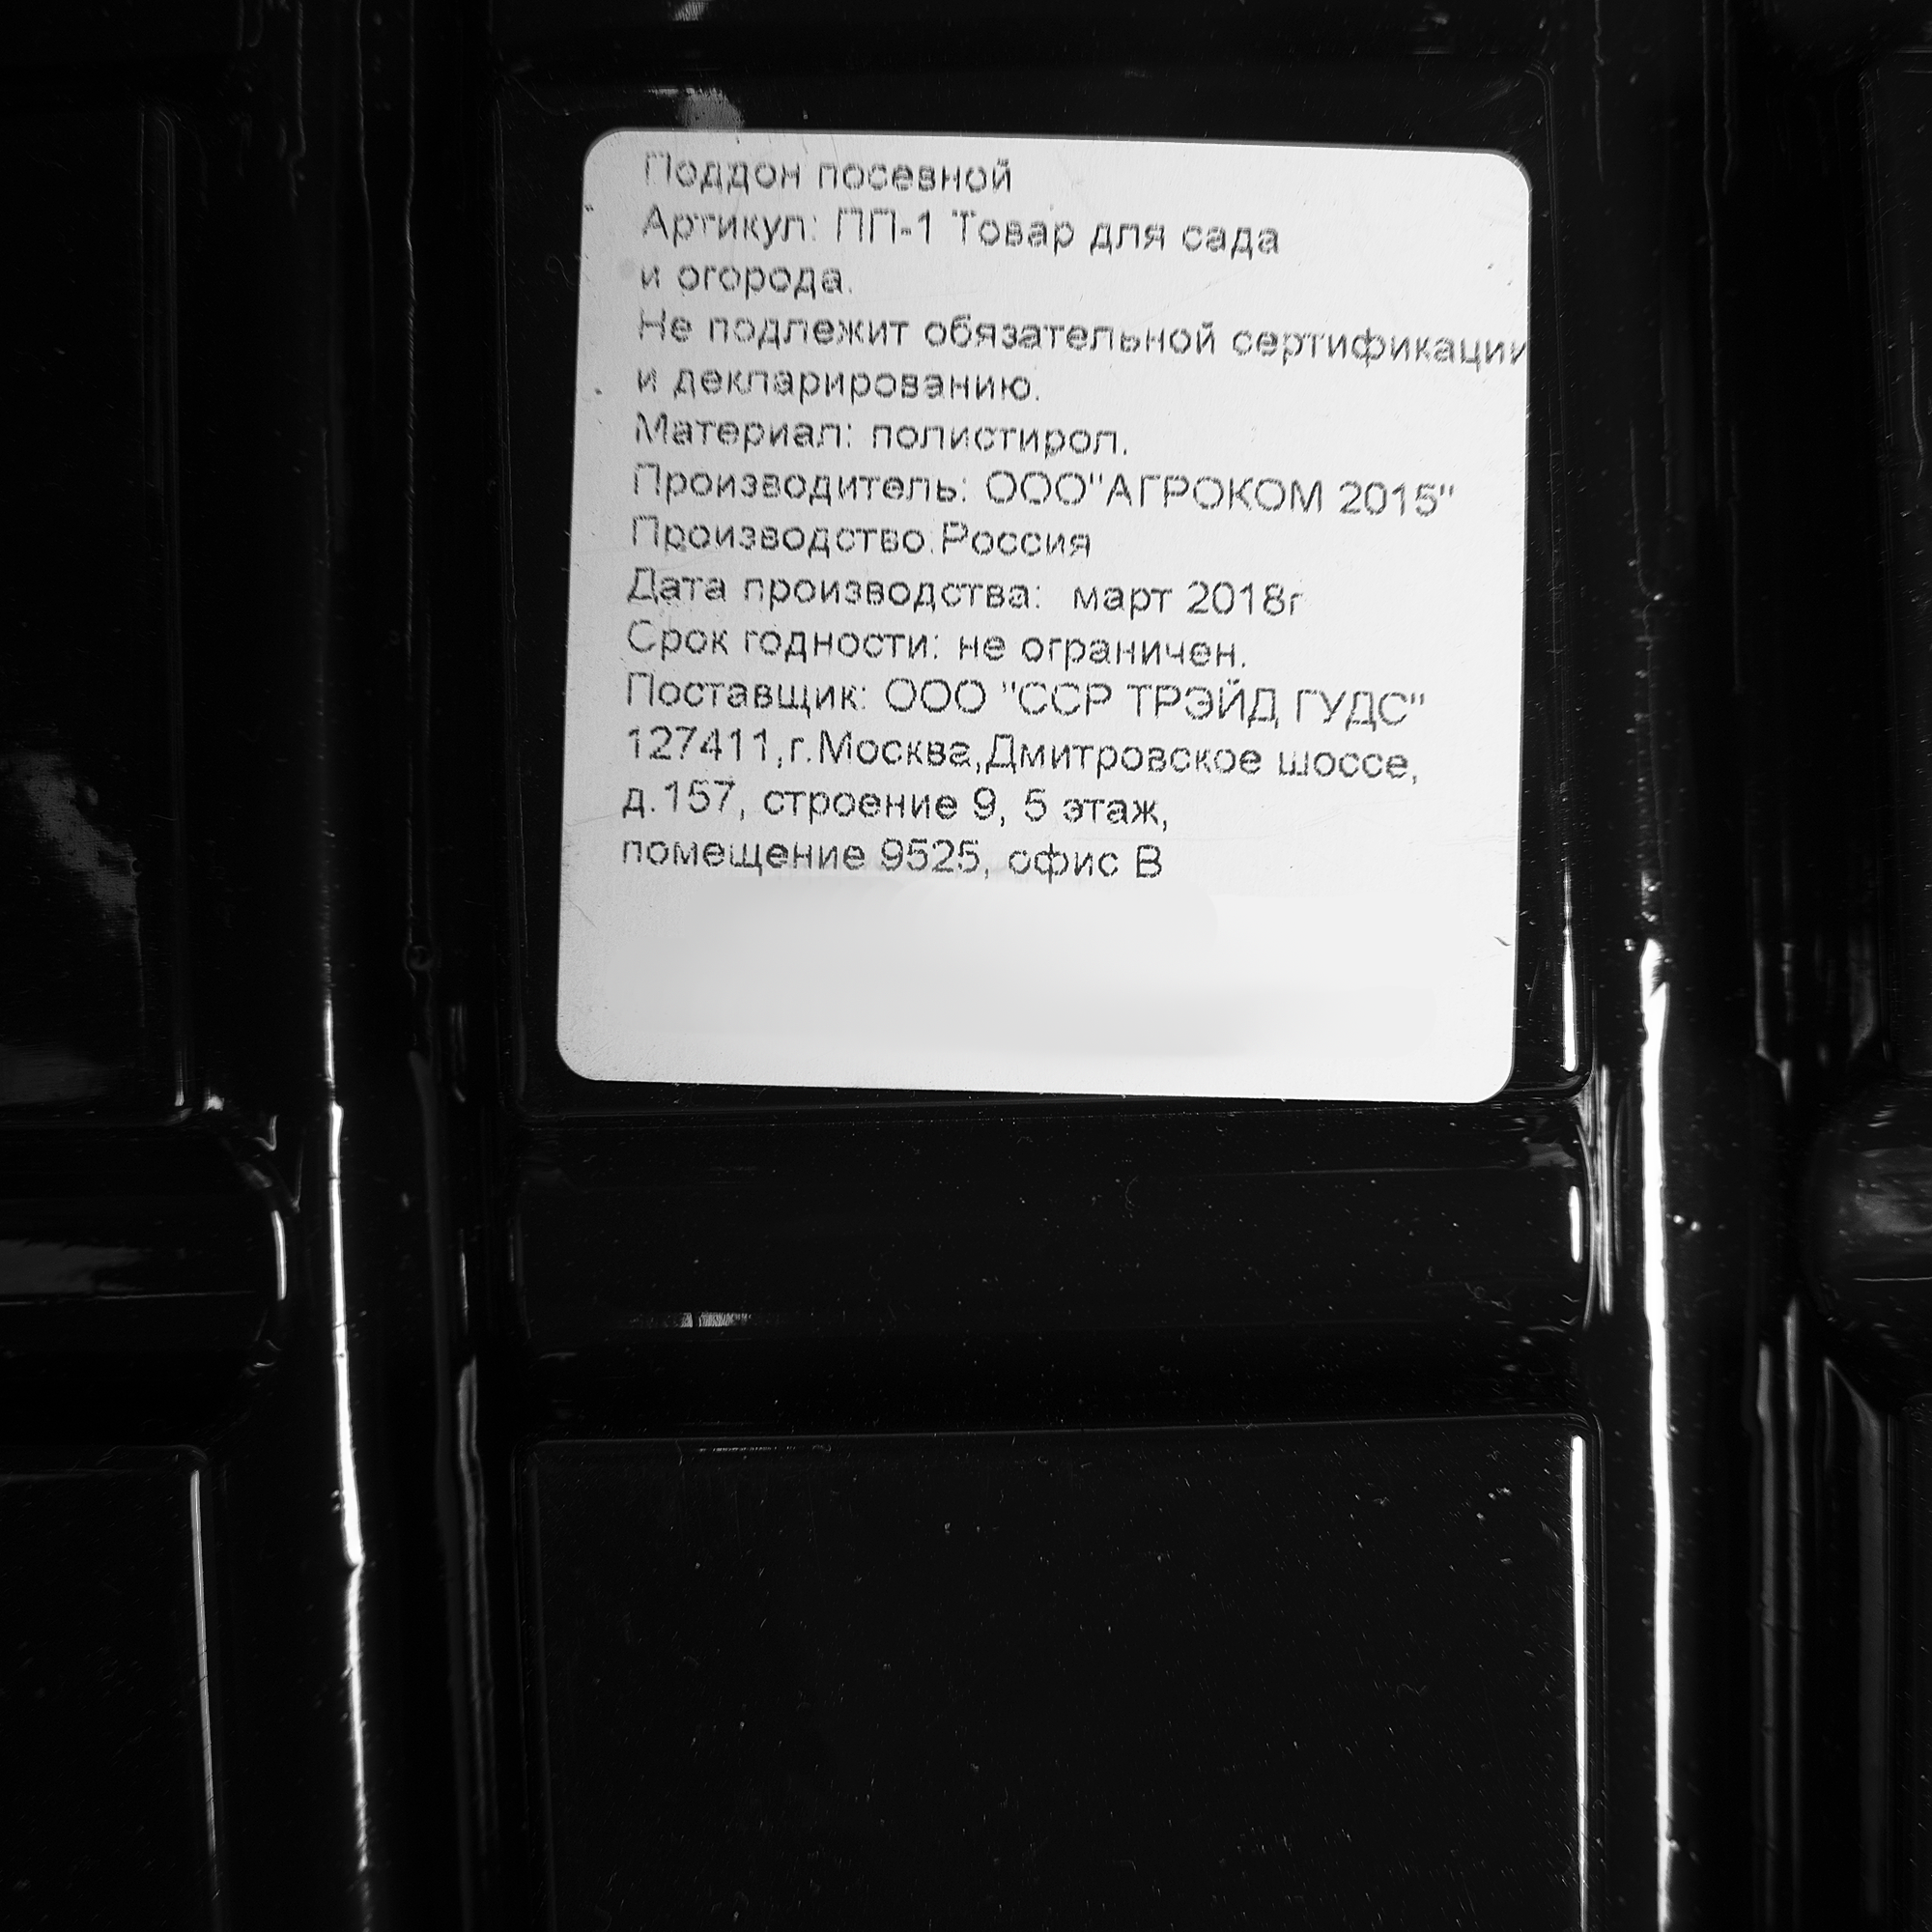 Поддон посевной
Артикул: ПП-1 Товар для сада
и огорода.
Не подлежит обязательной сертификации
и декларированию.
Материал: полистирол.
Производитель: ООО"АГРОКОМ 2015"
Производство:Россия
Дата производства: март 2018г
Срок годности: не ограничен.
Поставщик: ООО "ССР ТРЭЙД ГУДС"
127411,г.Москва,Дмитровское шоссе,
д.157, строение 9, 5 этаж,
помещение 9525, офис В